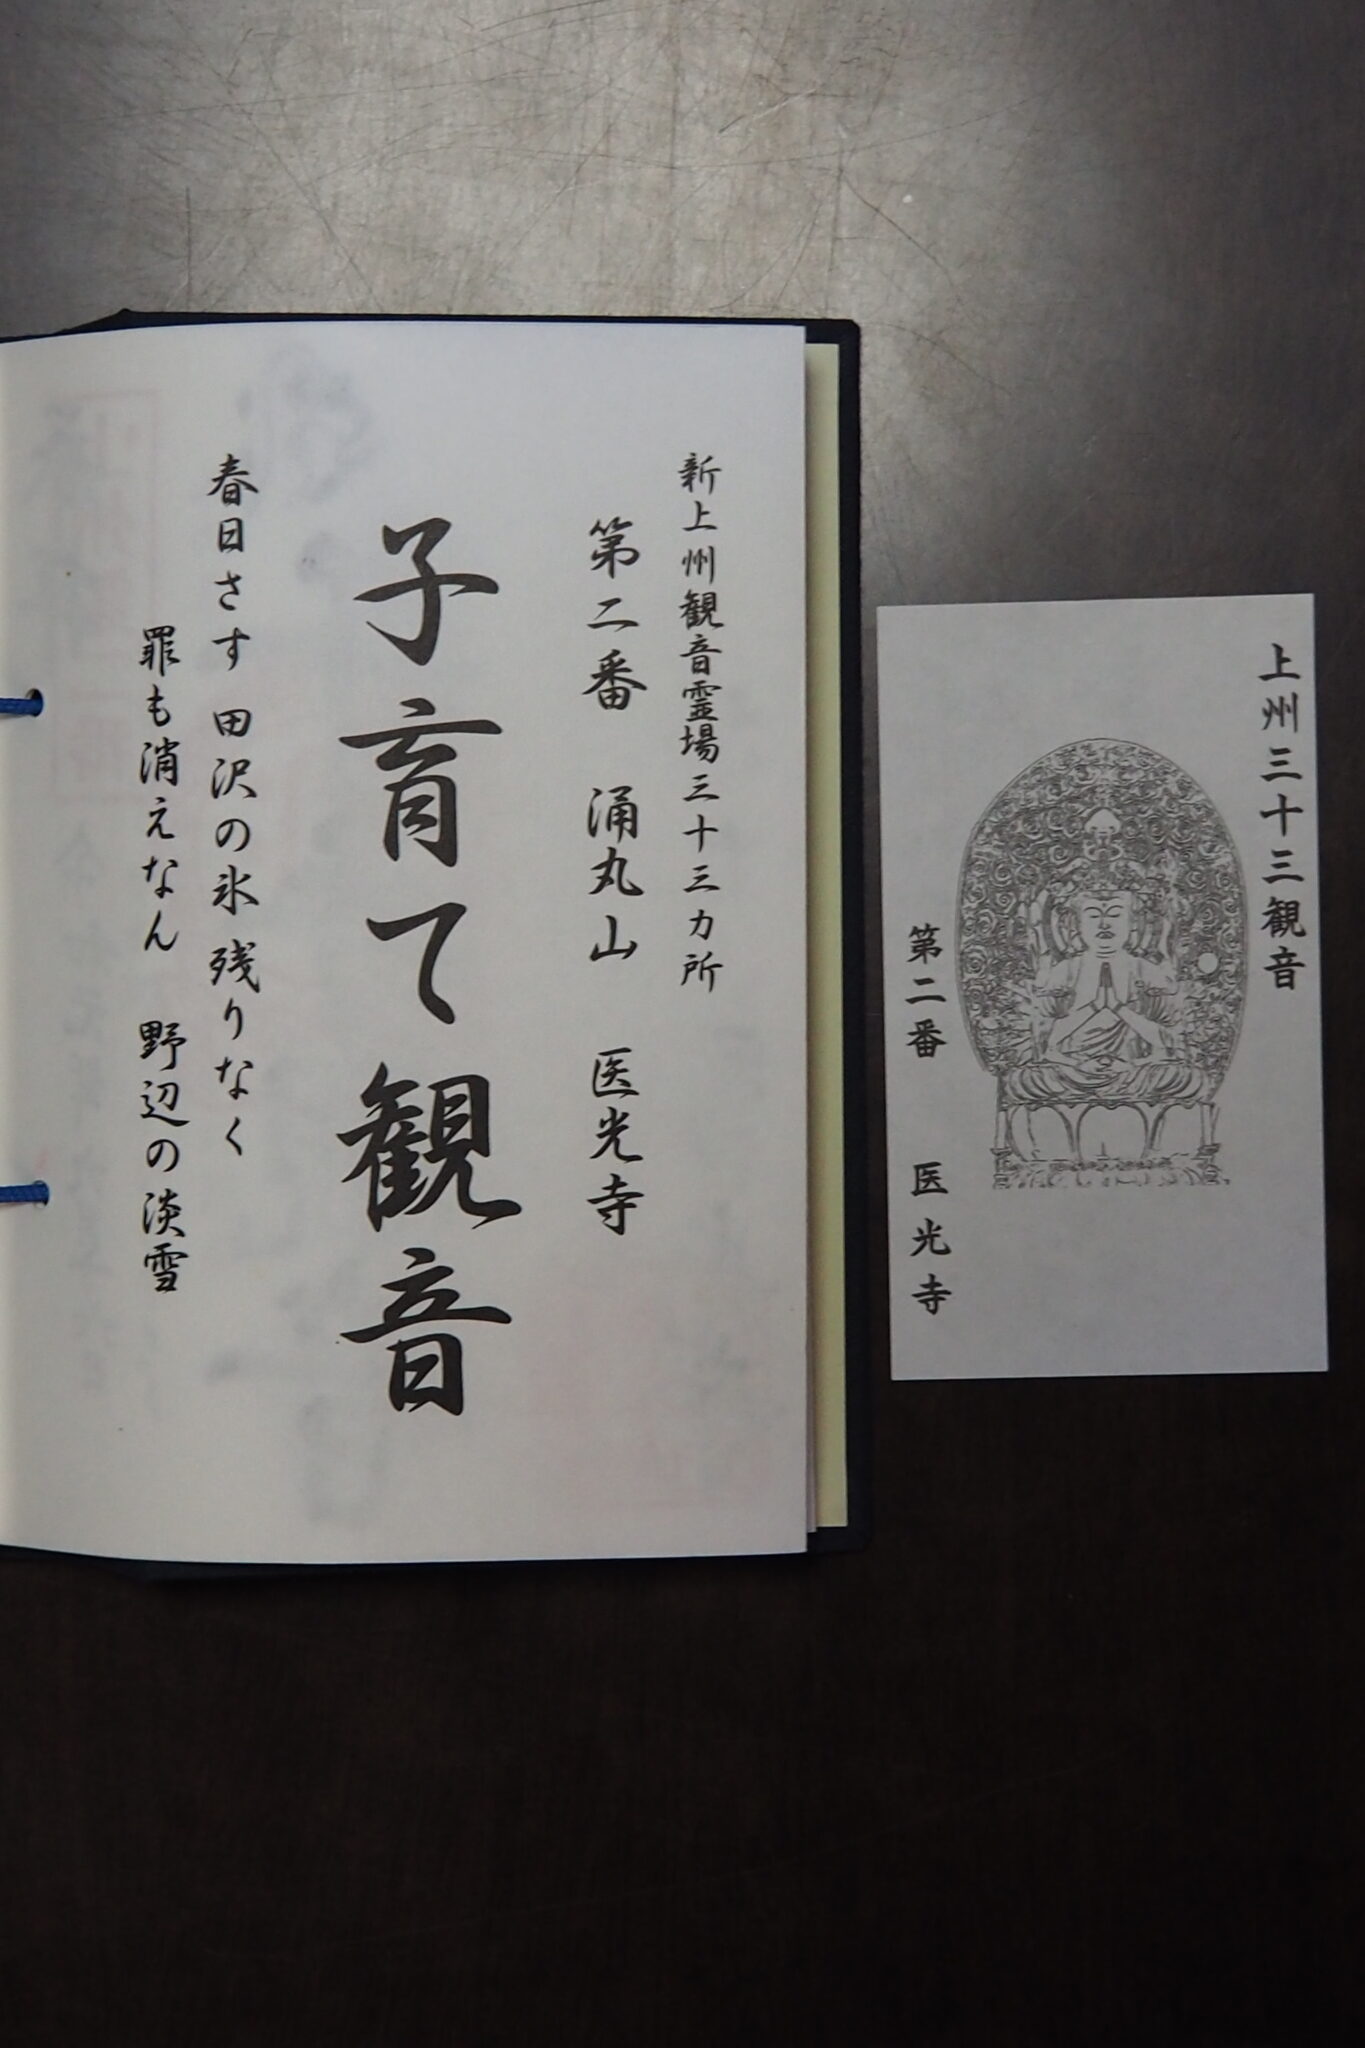 新上州観音霊場三十三カ所
第二番　涌丸山　医光寺
子育て観音
春日さす 田沢の氷 残りなく
罪も消えなん 野辺の淡雪
上州三十三観音
第二番　医光寺